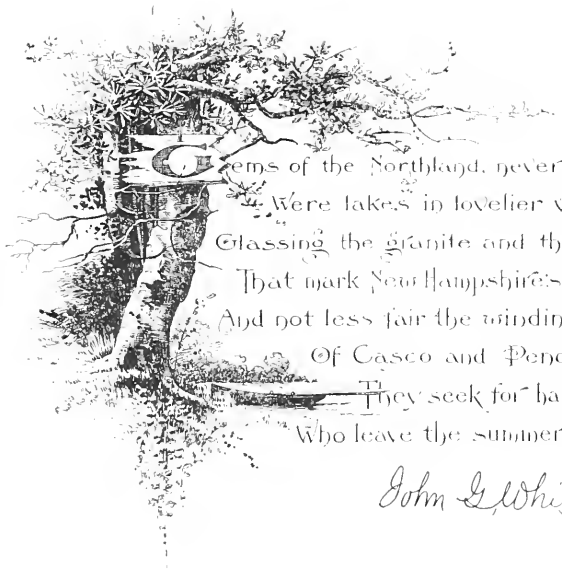 Gems of the Northland, never
Were lakes in lovelier v
Glassing the granite and th
That mark New Hampshire's
And not less fair the windin
Of Casco and Penc
They seek for ha
Who leave the summer
John G. Whi